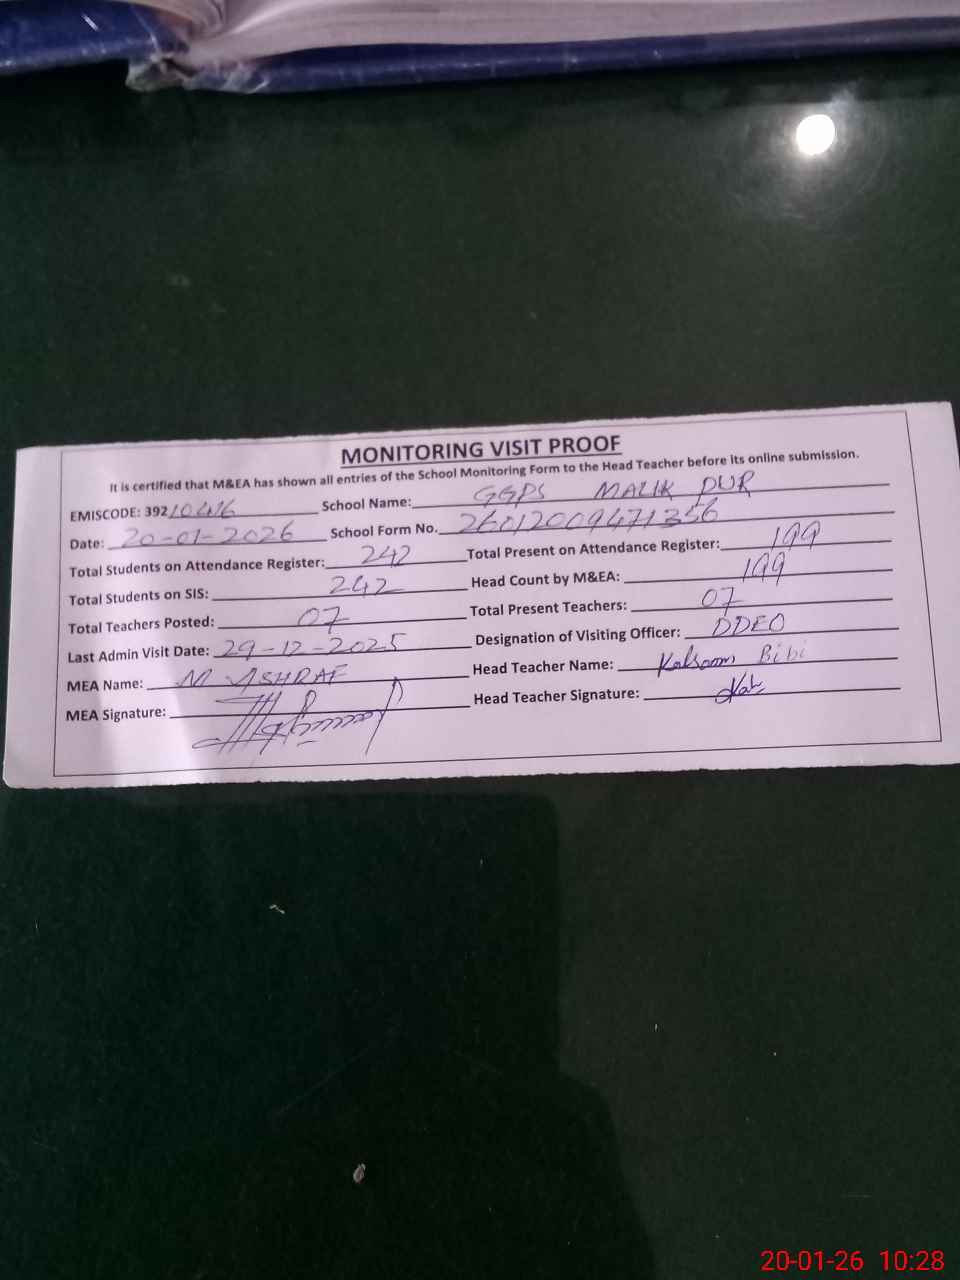 MONITORING VISIT PROOF
It is certified that M&EA has shown all entries of the School Monitoring Form to the Head Teacher before its online submission.
EMISCODE: 39210416 School Name: GGPS MALIK PUR
Date: 20-01-2026 School Form No. 26012009471356
Total Students on Attendance Register: 242 Total Present on Attendance Register: 199
Total Students on SIS: 242 Head Count by M&EA: 199
Total Teachers Posted: 07 Total Present Teachers: 07
Last Admin Visit Date: 29-12-2025 Designation of Visiting Officer: DDEO
MEA Name: M ASHRAF Head Teacher Name: Kalsoom Bibi
MEA Signature: Head Teacher Signature:
20-01-26 10:28